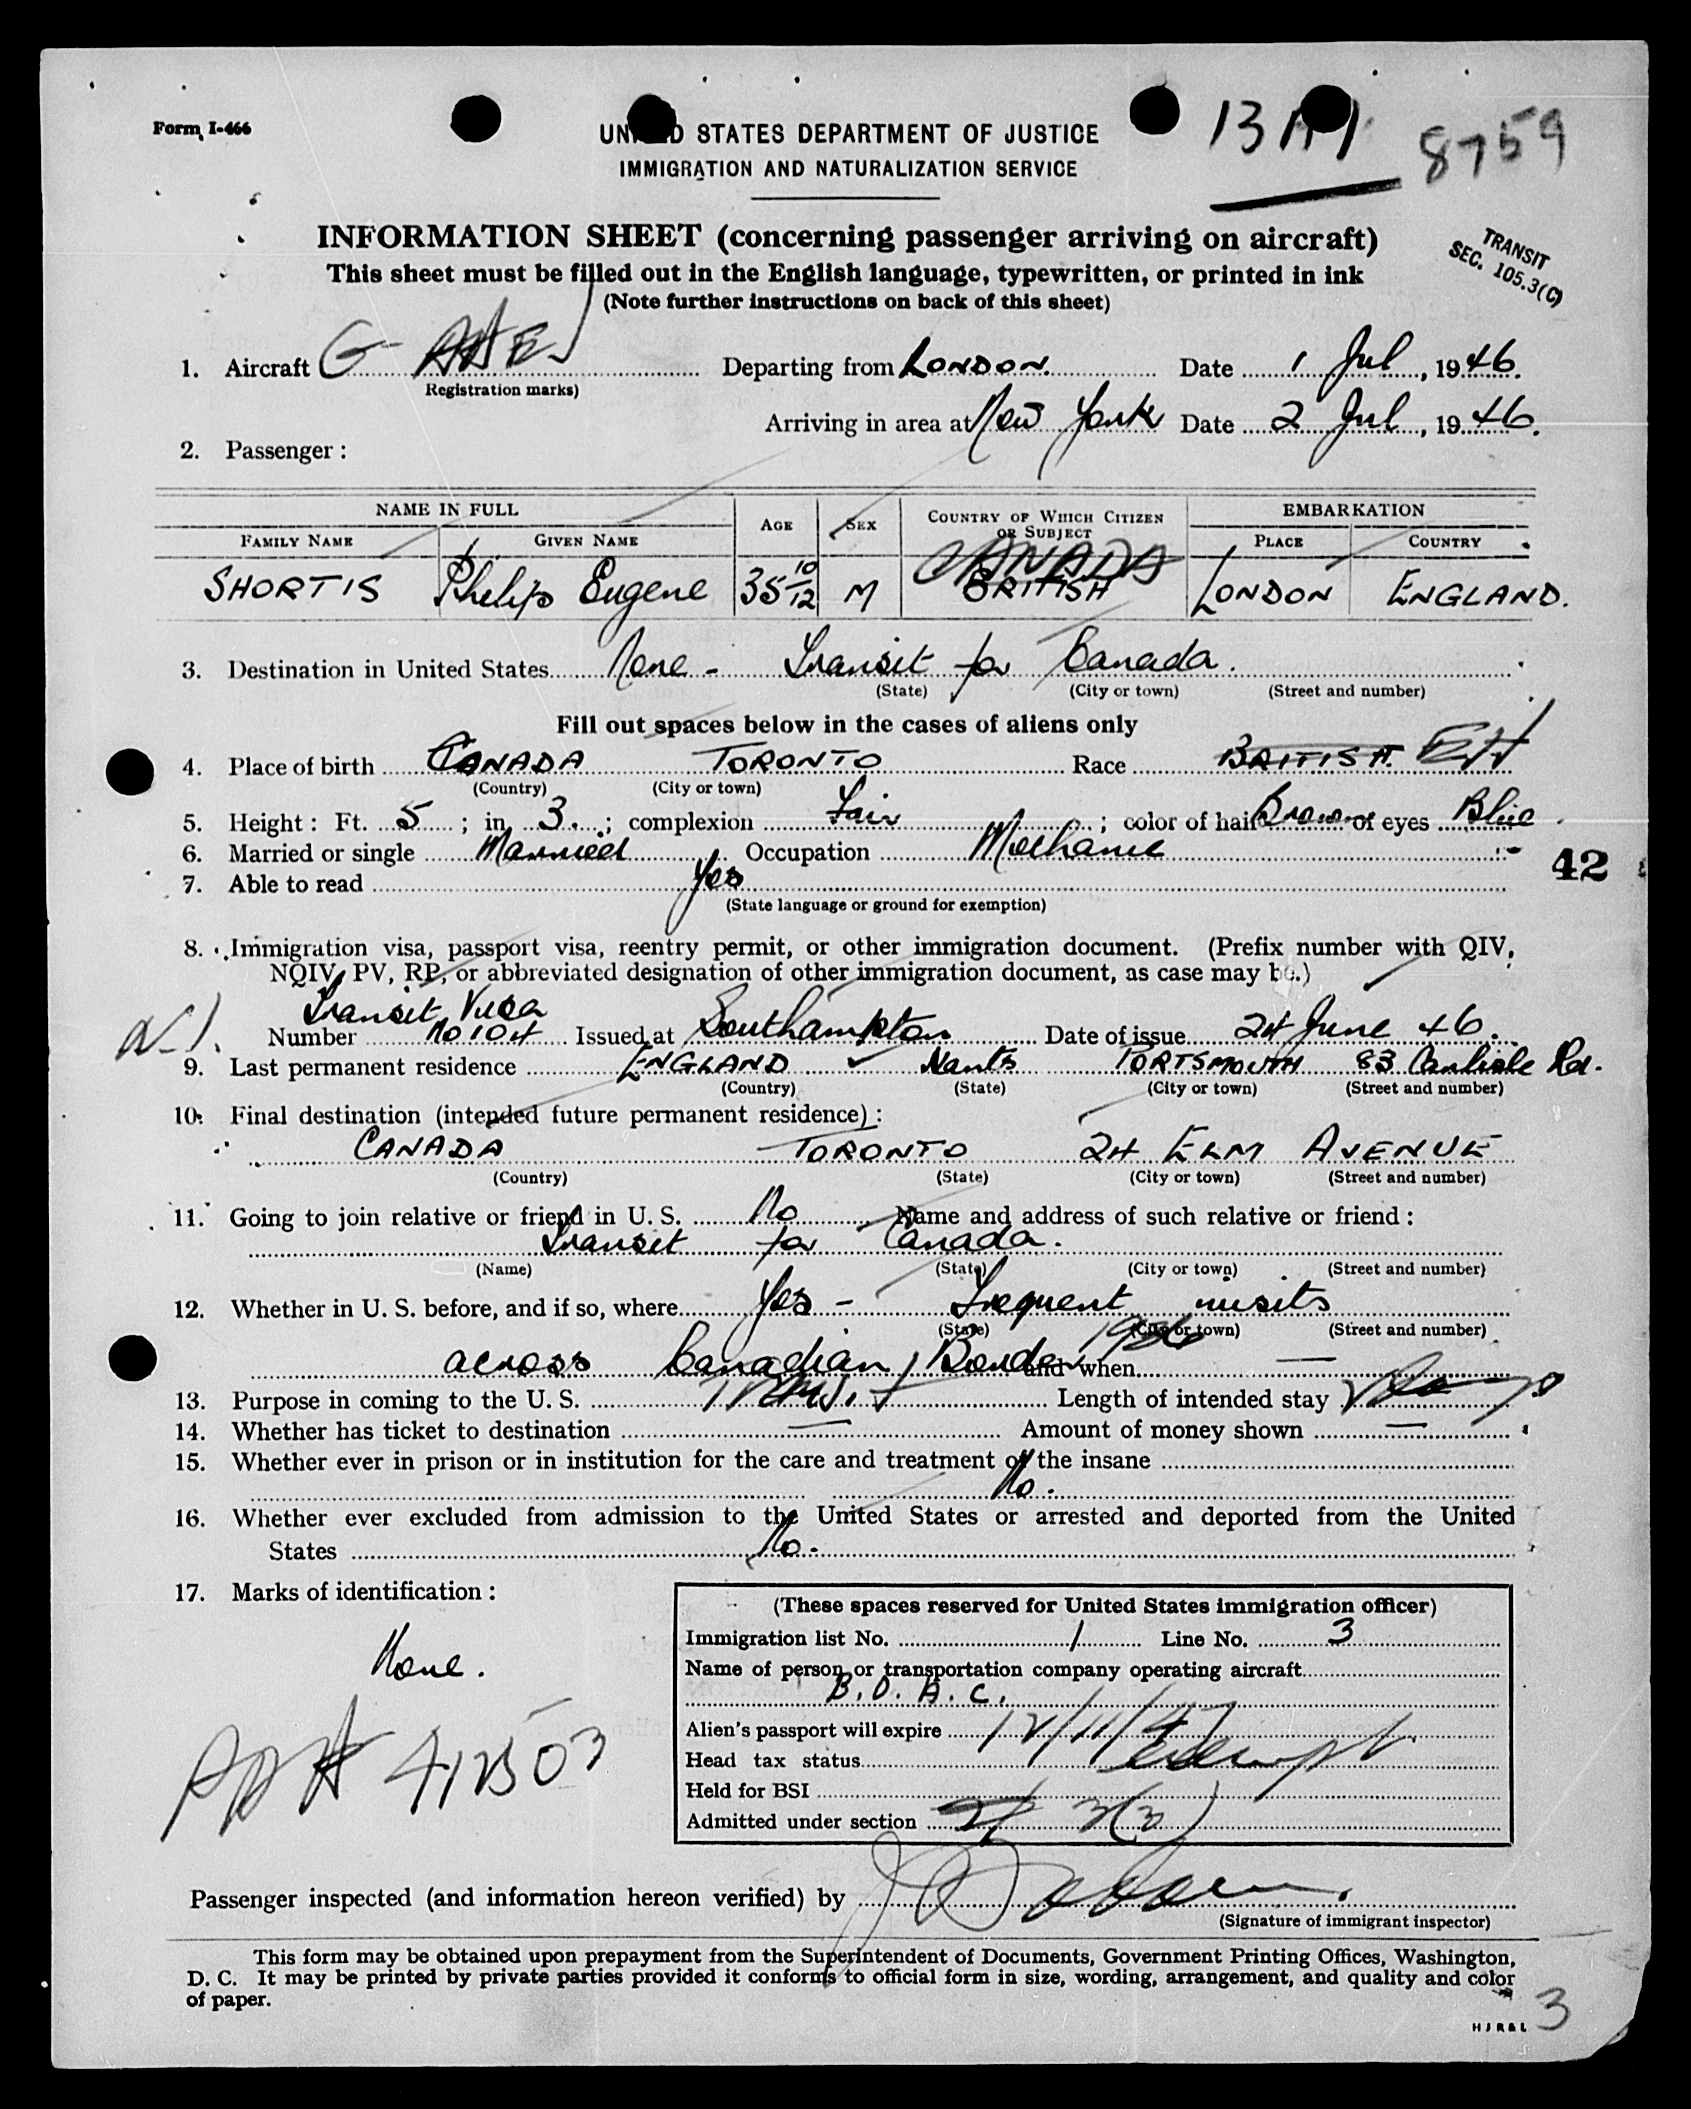 Form I-466
UNITED STATES DEPARTMENT OF JUSTICE
IMMIGRATION AND NATURALIZATION SERVICE
8759
TRANSIT
SEC. 105.3(C)
INFORMATION SHEET (concerning passenger arriving on aircraft)
This sheet must be filled out in the English language, typewritten, or printed in ink
(Note further instructions on back of this sheet)
1. Aircraft G- Departing from LONDON. Date 1 Jul, 1946.
(Registration marks)
Arriving in area at New York Date 2 Jul, 1946.
2. Passenger:
NAME IN FULL AGE SEX COUNTRY OF WHICH CITIZEN OR SUBJECT EMBARKATION
FAMILY NAME GIVEN NAME PLACE COUNTRY
CANADA
SHORTIS Philip Eugene 35 10/12 M BRITISH LONDON ENGLAND.
3. Destination in United States None - Transit for Canada.
(State) (City or town) (Street and number)
Fill out spaces below in the cases of aliens only
4. Place of birth CANADA TORONTO Race BRITISH.
(Country) (City or town)
5. Height: Ft. 5; in. 3.; complexion Fair; color of hair Brown of eyes Blue
6. Married or single Married Occupation Mechanic
42
7. Able to read Yes
(State language or ground for exemption)
8. Immigration visa, passport visa, reentry permit, or other immigration document. (Prefix number with QIV,
NQIV, PV, RP, or abbreviated designation of other immigration document, as case may be.)
Transit Visa
Number No 104 Issued at Southampton Date of issue 24 June 46.
9. Last permanent residence ENGLAND Hants PORTSMOUTH 83 Carlisle Rd.
(Country) (State) (City or town) (Street and number)
10. Final destination (intended future permanent residence):
CANADA TORONTO 24 ELM AVENUE
(Country) (State) (City or town) (Street and number)
11. Going to join relative or friend in U. S. No Name and address of such relative or friend:
Transit for Canada.
(Name) (State) (City or town) (Street and number)
12. Whether in U. S. before, and if so, where Yes - Frequent visits
(State) (City or town) (Street and number)
across Canadian Border and when
13. Purpose in coming to the U. S. Transit Length of intended stay
14. Whether has ticket to destination — Amount of money shown —
15. Whether ever in prison or in institution for the care and treatment of the insane
No.
16. Whether ever excluded from admission to the United States or arrested and deported from the United
States No.
17. Marks of identification:
None.
(These spaces reserved for United States immigration officer)
Immigration list No. 1 Line No. 3
Name of person or transportation company operating aircraft
B.O.A.C.
Alien's passport will expire 12/11/47
Head tax status exempt
Held for BSI
Admitted under section 3(3)
Passenger inspected (and information hereon verified) by
(Signature of immigrant inspector)
This form may be obtained upon prepayment from the Superintendent of Documents, Government Printing Offices, Washington,
D. C. It may be printed by private parties provided it conforms to official form in size, wording, arrangement, and quality and color
of paper.
3
H J R & L